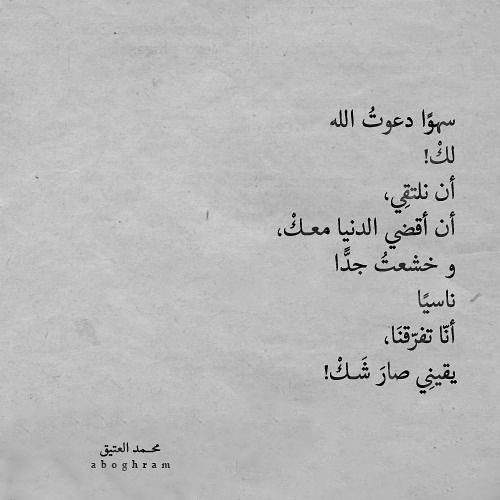 سهوًا دعوتُ الله
لكْ!
أن نلتقِي،
أن أقضي الدنيا معـكْ،
و خشعتُ جدًّا
ناسيًا
أنّا تفرّقنَا،
يقينِي صارَ شَـكْ!
محـمد العتيق
aboghram